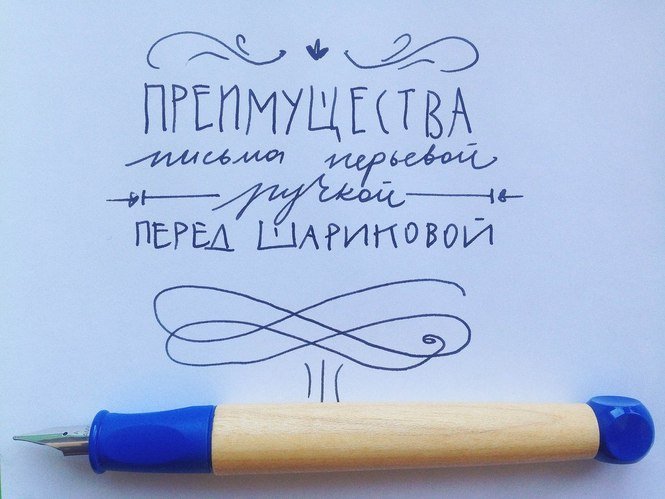 ПРЕИМУЩЕСТВА
письма перьевой
ручкой
ПЕРЕД ШАРИКОВОЙ